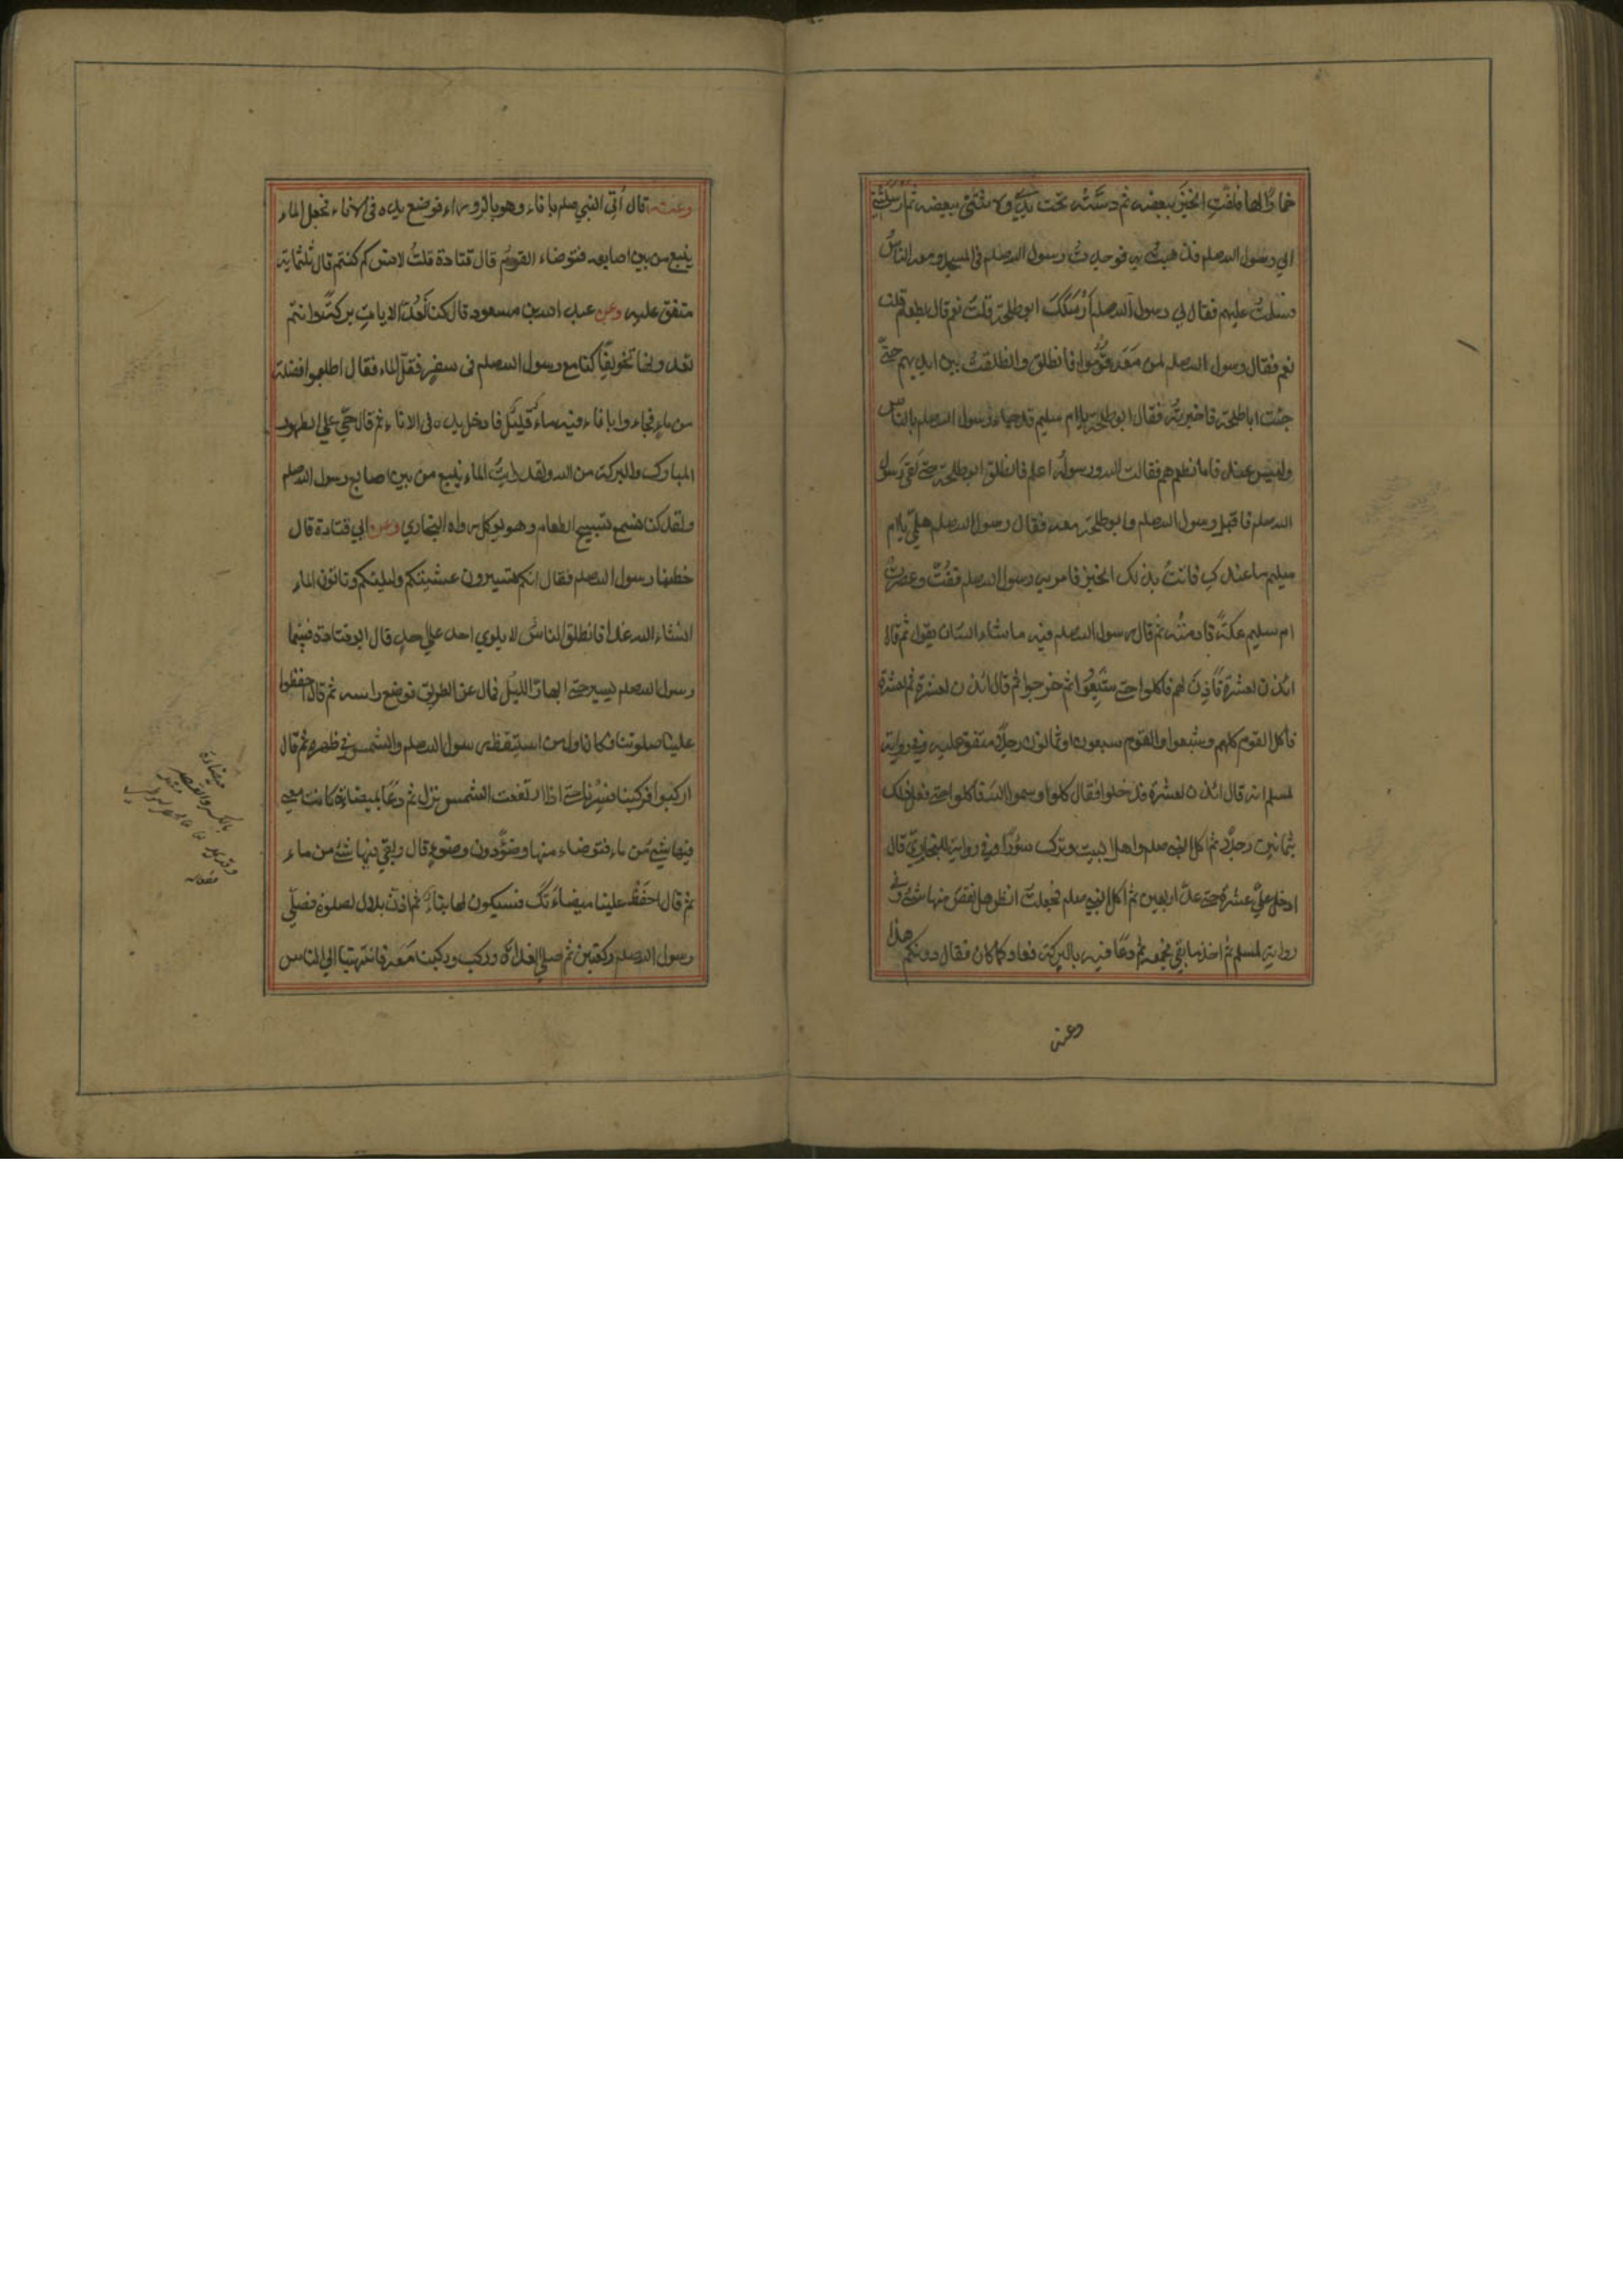 خمارًا لها فلفّتِ الخبزَ ببعضه ثم دسّته تحت يدي ولاثتني ببعضه ثم ارسلتني
الي رسول الله صلم فذهبتُ به فوجدتُ رسول الله صلم في المسجد ومعه الناسُ
فسلمتُ عليهم فقال لي رسول الله صلم اَرْسَلَكَ ابو طلحة قلتُ نعم قال بطعام قلت
نعم فقال رسول الله صلم لمن مَعَه قُوْمُوا فانطلق وانطلقتُ بين ايديهم حتّي
جئت اباطلحة فاخبرته فقال ابو طلحة يا ام سليم قد جاء رسول الله صلم بالناس
وليس عندنا ما نطعمهم فقالت الله ورسوله اعلم فانطلق ابو طلحة حتي لقي رسول
الله صلم فاقبل رسول الله صلم وابو طلحة معه فقال رسول الله صلم هلمّي يا ام
سليم ما عندكِ فاتتْ بذلك الخبز فامر به رسول الله صلم ففُتّ وعصرتْ
ام سليم عكّةً فادمتْه ثم قال رسول الله صلم فيه ما شاء الله ان يقول ثم قال
ائذن لعشرة فأذِنَ لهم فاكلوا حتي شَبِعُوا ثم خرجوا ثم قال ائذن لعشرة ثم لعشرة
فاكل القوم كلهم وشبعوا والقوم سبعون او ثمانون رجلاً متفق عليه وفي رواية
لمسلم انه قال ائذن لعشرة فدخلوا فقال كلوا وسموا الله فاكلوا حتي فعل ذلك
بثمانين رجلاً ثم اكل النبي صلم واهل البيت وترك سؤرًا وفي رواية للبخاري قال
ادخل عليّ عشرة حتي عدّ اربعين ثم اكل النبي صلم فجعلتُ انظر هل نقص منها شئ وفي
رواية لمسلم ثم اخذ ما بقي فجمعه ثم دعا فيه بالبركة فعاد كما كان فقال دونكم هذا
وعنه
وعنه قال اُتِي النبي صلم باناء وهو بالزوراء فوضع يده في الاناء فجعل الماء
ينبع من بين اصابعه فتوضاء القومُ قال قتادة قلتُ لانس كم كنتم قال ثلثماية
متفق عليه وعن عبد الله بن مسعود قال كنا نَعُدّ الايات بركةً وانتم
تعدونها تخويفًا كنا مع رسول الله صلم في سفرٍ فقلّ الماء فقال اطلبوا فضلة
من ماءٍ فجاءوا باناء فيه ماء قليل فادخل يده في الاناء ثم قال حيّ علي الطهور
المبارك والبركة من الله ولقد رأيتُ الماء ينبع من بين اصابع رسول الله صلم
ولقد كنا نسمع تسبيح الطعام وهو يوكل رواه البخاري وعن ابي قتادة قال
خطبنا رسول الله صلم فقال انكم تسيرون عشيتكم وليلتكم وتاتون الماء
انشاء الله غدًا فانطلق الناسُ لا يلوي احد علي احدٍ قال ابو قتادة فبينما
رسول الله صلم يسير حتي ابهارّ الليلُ فمال عن الطريق فوضع راسه ثم قال احفظوا
علينا صلوتنا فكان اول من استيقظ رسول الله صلم والشمس في ظهره ثم قال
اركبوا فركبنا فسِرْنا حتي اذا ارتفعت الشمس نزل ثم دَعَا بميضاءةٍ كانت معي
فيها شئ من ماء فتوضاء منها وضوًا دون وضوءٍ قال وبقي فيها شئ من ماء
ثم قال احفَظْ علينا ميضاءَتَك فسيكون لها نبأ ثم اذّن بلال لصلوة فصلّي
رسول الله صلم ركعتين ثم صلي الغداة وركب وركبنا مَعَه فانتهينا الي الناس
ميضاءة
بالكسر والقصر